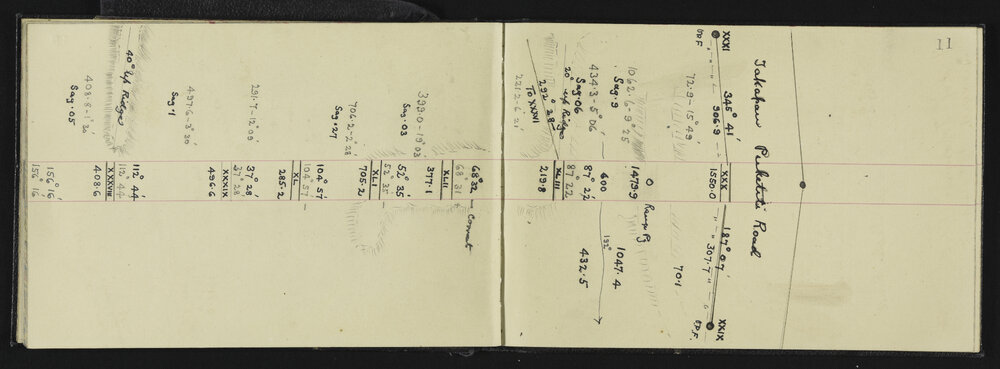 11
Puketiti Road
XXXI
345° 41'
906.9
XXX
1550.0
187° 07'
307.7
XXIX
72.9 – 15° 49'
70.1
O Range Pg
1062.6 – 9° 25'
Sag .9
1479.9
1047.4
434.3 – 5° 06'
Sag .06
600
192°
432.5
20° up Ridge
87° 22'
87° 22'
292° 28'
To XXXVI
XLIII
219.8
221.2 – 6° 21'
68° 32'
68° 31'
XLII
377.1
399.0 – 19° 03'
Sag .03
52° 35'
52° 35'
XLI
705.2
706.2 – 2° 28'
Sag .27
104° 57'
104° 57'
XL
285.2
291.7 – 12° 09'
37° 28'
37° 28'
XXXIX
496.6
497.6 – 3° 30'
Sag .1
40° up Ridge
112° 44'
112° 44'
XXXVIII
408.6
408.8 – 1° 30'
Sag .05
156° 16'
156° 16'